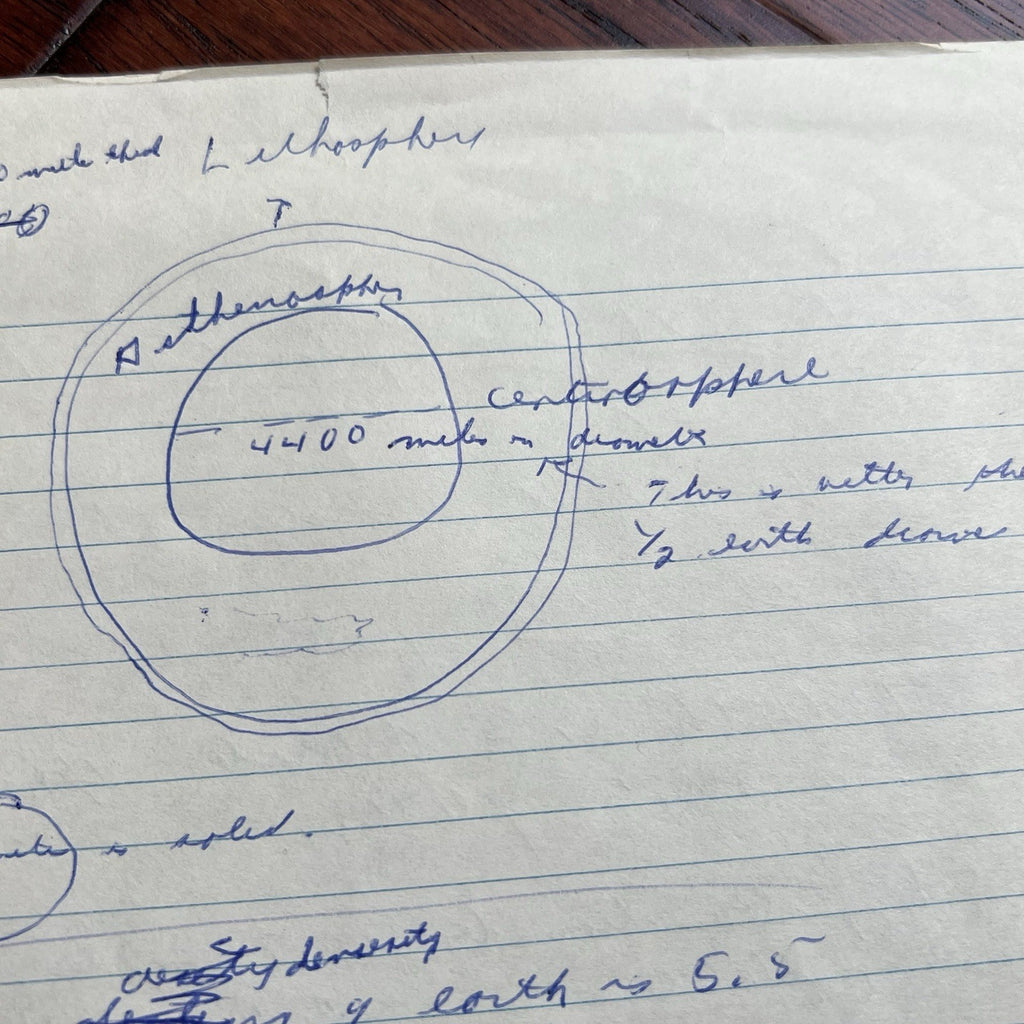 Lithosphere
Asthenosphere
centrosphere
4400 miles in diameter
This is
1/2 earth
is solid.
density
of earth is 5.5